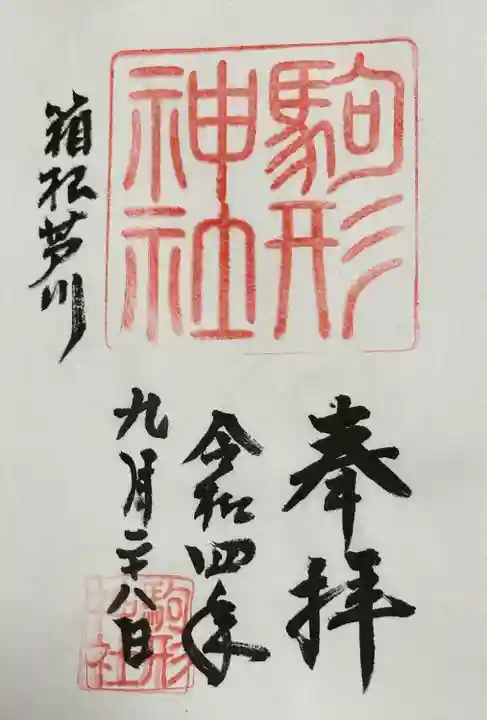 駒形
神社
箱根芦川
奉拝
令和四年
九月二十八日
駒形
神社